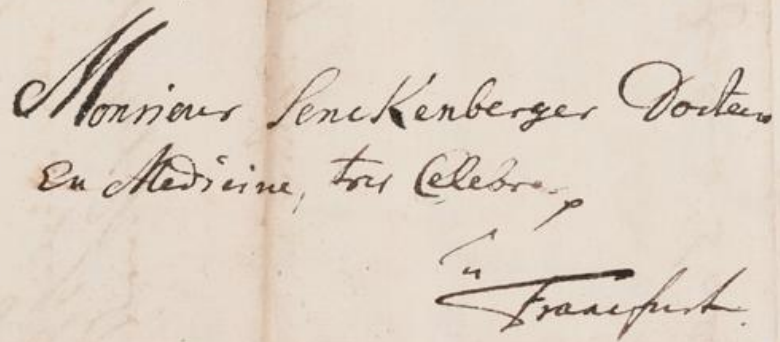 Monsieur Senckenberger Docteur
En Medicine, tres Celebre
in
Francfurt.